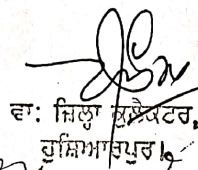 ਵਾ: ਜ਼ਿਲ੍ਹਾ ਕੁਲੈਕਟਰ,
ਹੁਸ਼ਿਆਰਪੁਰ।